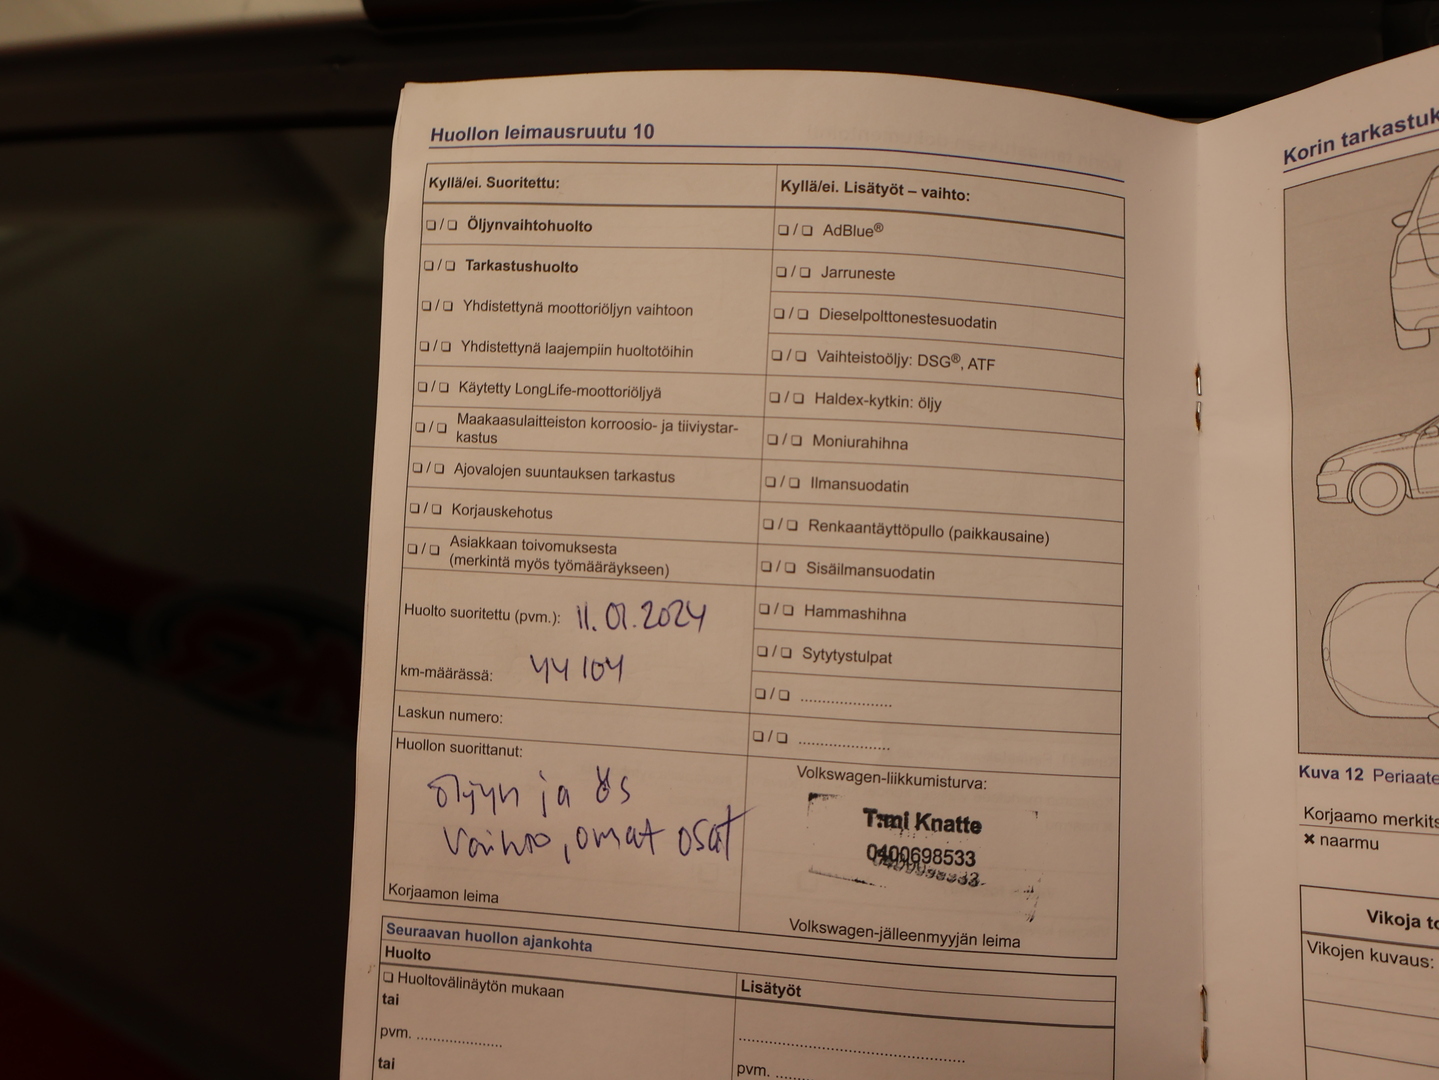 Huollon leimausruutu 10
Kyllä/ei. Suoritettu:
❏ / ❏ Öljynvaihtohuolto
❏ / ❏ Tarkastushuolto
❏ / ❏ Yhdistettynä moottoriöljyn vaihtoon
❏ / ❏ Yhdistettynä laajempiin huoltotöihin
❏ / ❏ Käytetty LongLife-moottoriöljyä
❏ / ❏ Maakaasulaitteiston korroosio- ja tiiviystar-
kastus
❏ / ❏ Ajovalojen suuntauksen tarkastus
❏ / ❏ Korjauskehotus
❏ / ❏ Asiakkaan toivomuksesta
(merkintä myös työmääräykseen)
Huolto suoritettu (pvm.): 11.01.2024
km-määrässä: 44 104
Laskun numero:
Huollon suorittanut:
öljyn ja ös
vaihto, omat osat
Korjaamon leima
Kyllä/ei. Lisätyöt – vaihto:
❏ / ❏ AdBlue®
❏ / ❏ Jarruneste
❏ / ❏ Dieselpolttonestesuodatin
❏ / ❏ Vaihteistoöljy: DSG®, ATF
❏ / ❏ Haldex-kytkin: öljy
❏ / ❏ Moniurahihna
❏ / ❏ Ilmansuodatin
❏ / ❏ Renkaantäyttöpullo (paikkausaine)
❏ / ❏ Sisäilmansuodatin
❏ / ❏ Hammashihna
❏ / ❏ Sytytystulpat
❏ / ❏ .....................
❏ / ❏ .....................
Volkswagen-liikkumisturva:
T:mi Knatte
0400698533
Volkswagen-jälleenmyyjän leima
Seuraavan huollon ajankohta
Huolto
❏ Huoltovälinäytön mukaan
tai
pvm. ....................
tai
Lisätyöt
.....................................................
pvm. ..........
Korin tarkastuk
Kuva 12 Periaate
Korjaamo merkits
✖ naarmu
Vikoja to
Vikojen kuvaus: